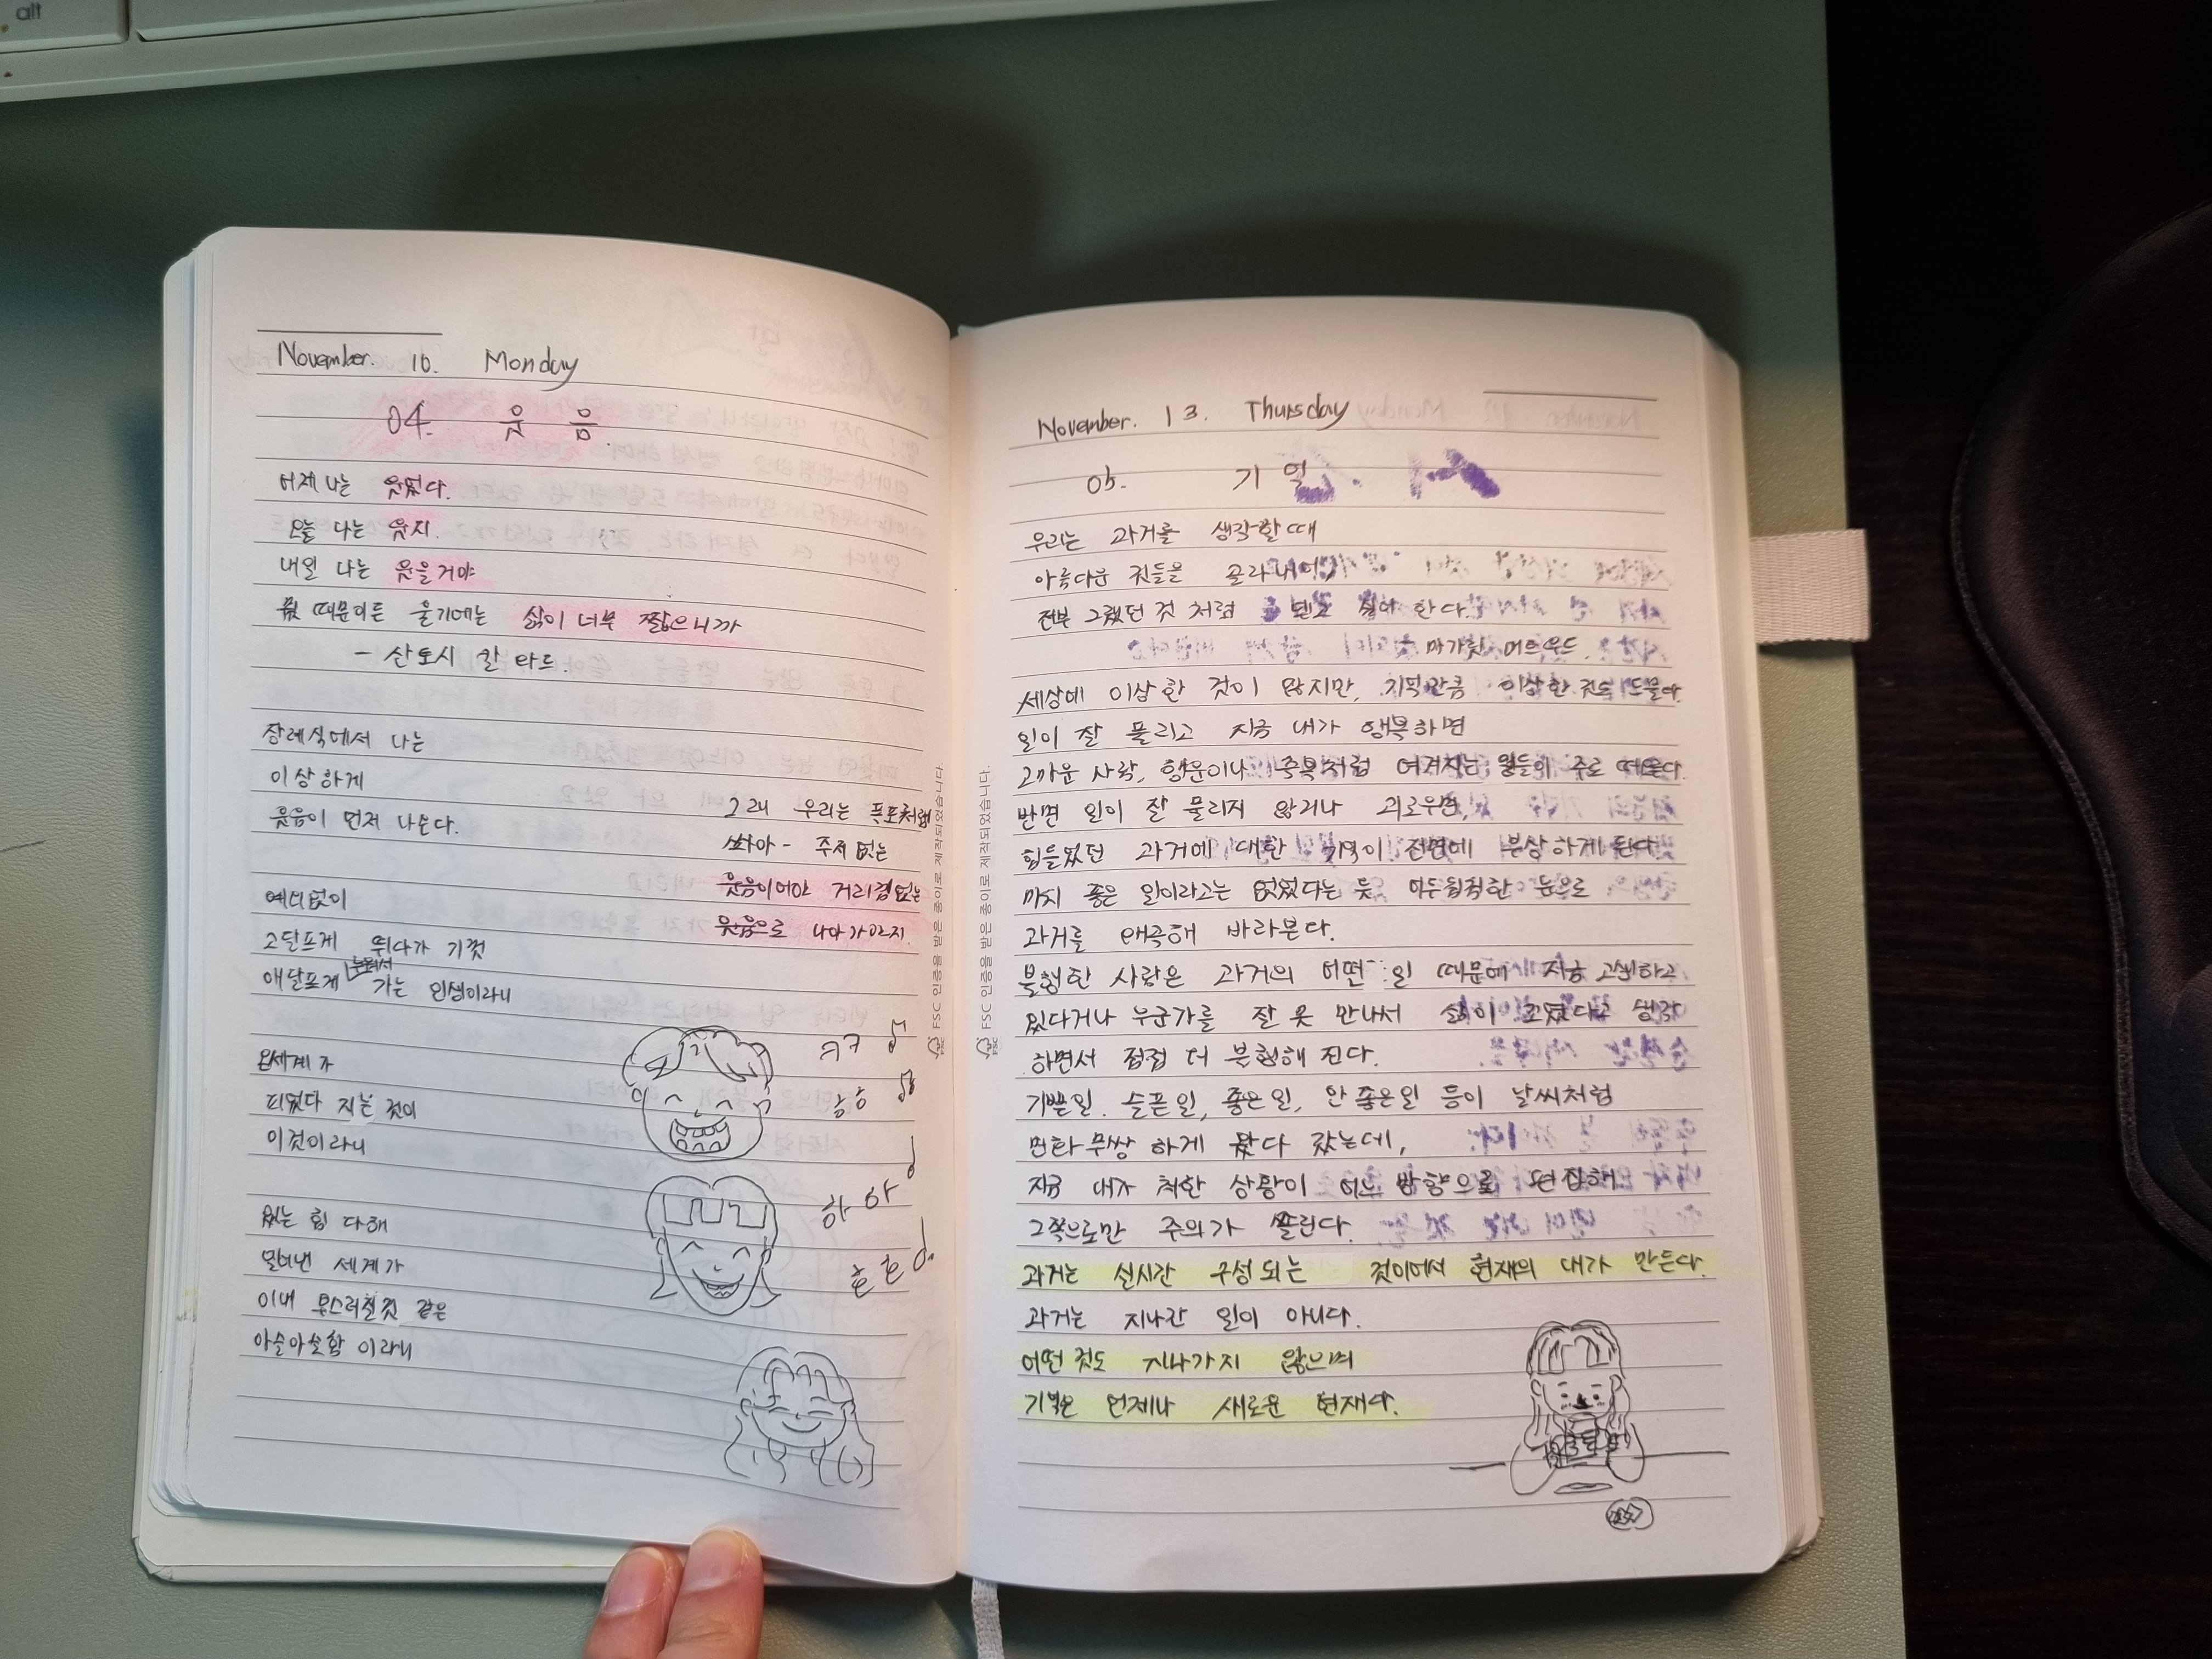 alt
November. 10. Monday
04. 웃음.
어제 나는 웃었다.
오늘 나는 웃지.
내일 나는 웃을거야
뭣 때문이든 울기에는 삶이 너무 짧으니까
- 산토시 칼와르.
장례식에서 나는
이상하게
웃음이 먼저 나온다.
예외없이
고단프게 뛰다가 기껏
애달프게 누워서 가는 인생이라니
온세계가
피었다 지는 것이
이것이라니
없는 힘 다해
밀어낸 세계가
이내 부스러질것 같은
아슬아슬함 이라니
그래 우리는 폭포처럼
쏴아- 주저 없는
웃음이어야 거리낌없는
웃음으로 나아가야지.
ㅋㅋ
하하
호호
FSC 인증을 받은 종이로 제작되었습니다.
FSC 인증을 받은 종이로 제작되었습니다.
November. 13. Thursday
05. 기억
우리는 과거를 생각할때
아름다운 것들을 골라내어,
전부 그랬던 것 처럼 믿고 싶어 한다.
마가릿 애트우드.
세상에 이상한 것이 많지만, 기억만큼 이상한 것도 드물다.
일이 잘 풀리고 지금 내가 행복하면
고마운 사람, 행운이나 축복처럼 여겨지는 일들이 주로 떠오른다.
반면 일이 잘 풀리지 않거나 괴로우면,
힘들었던 과거에 대한 기억이 전면에 부상하게 된다.
마치 좋은 일이라고는 없었다는 듯 어두침침한 눈으로
과거를 왜곡해 바라본다.
불행한 사람은 과거의 어떤 일 때문에 지금 고생하고
있다거나 누군가를 잘 못 만나서 삶이 꼬였다고 생각
하면서 점점 더 불행해 진다.
기쁜일. 슬픈일, 좋은일, 안 좋은일 등이 날씨처럼
변화무쌍 하게 왔다 갔는데,
지금 내가 처한 상황이 어느 방향으로 편집해
그쪽으로만 주의가 쏠린다.
과거는 실시간 구성 되는 것이어서 현재의 내가 만든다.
과거는 지나간 일이 아니다.
어떤 것도 지나가지 않으며
기억은 언제나 새로운 현재다.